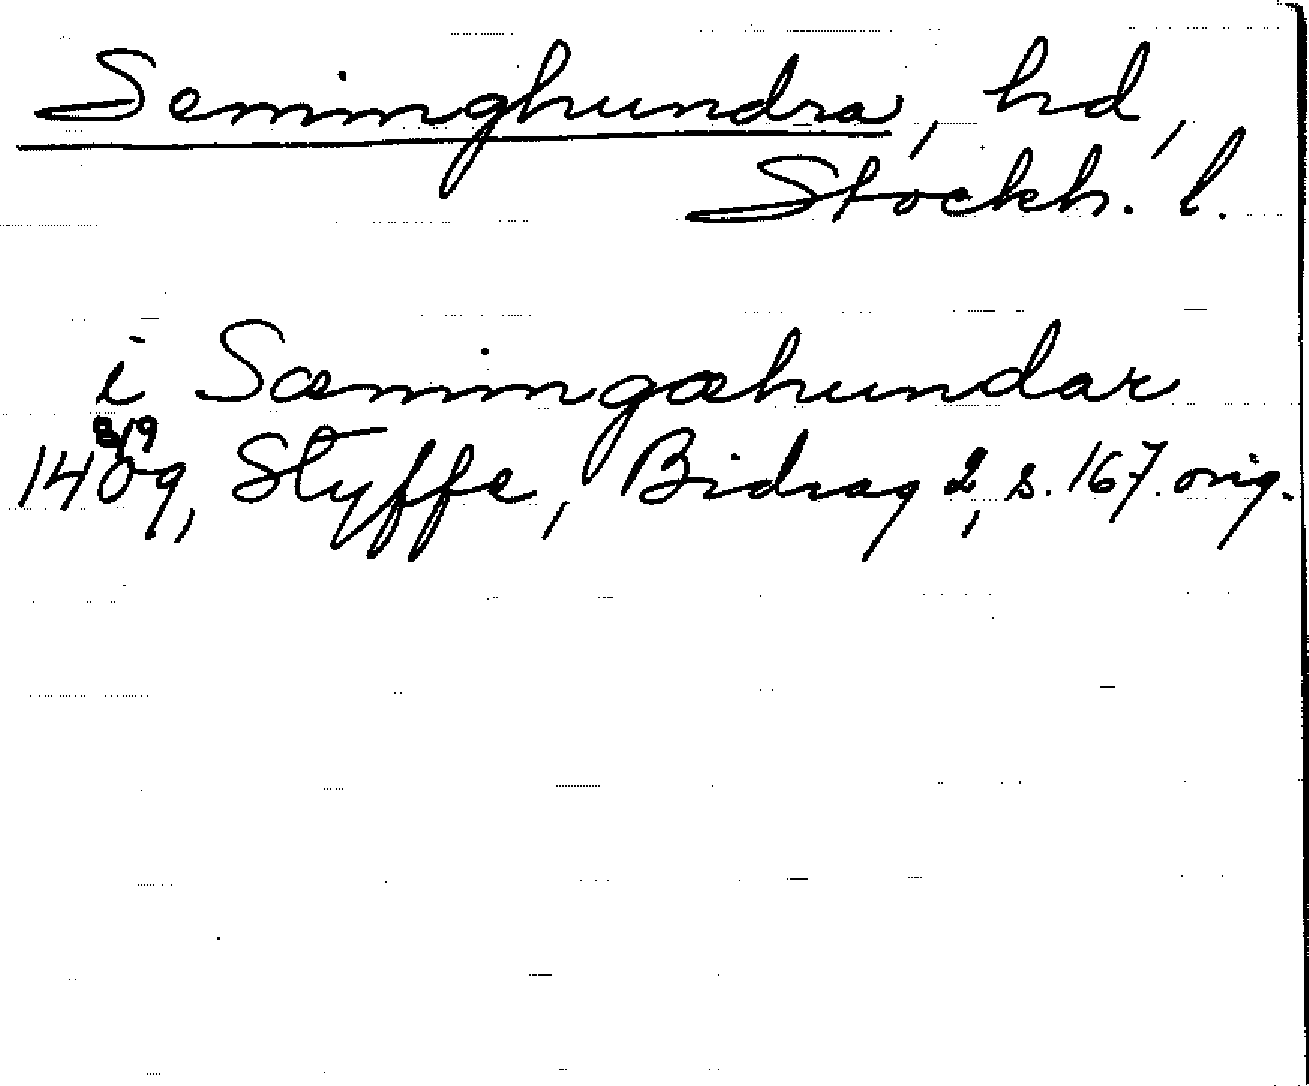 Seminghundra, hd,
Stockh. l.
i Sæmingæhundar
8/9
1409, Styffe, Bidrag 2, s. 167. orig.